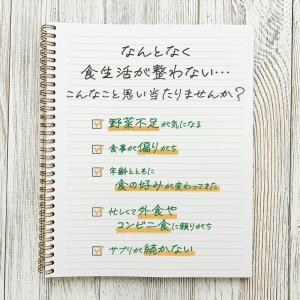 なんとなく
食生活が整わない…
こんなこと思い当たりませんか?
野菜不足が気になる
食事が偏りがち
年齢とともに
食の好みが変わってきた
忙しくて外食や
コンビニ食に頼りがち
サプリが続かない